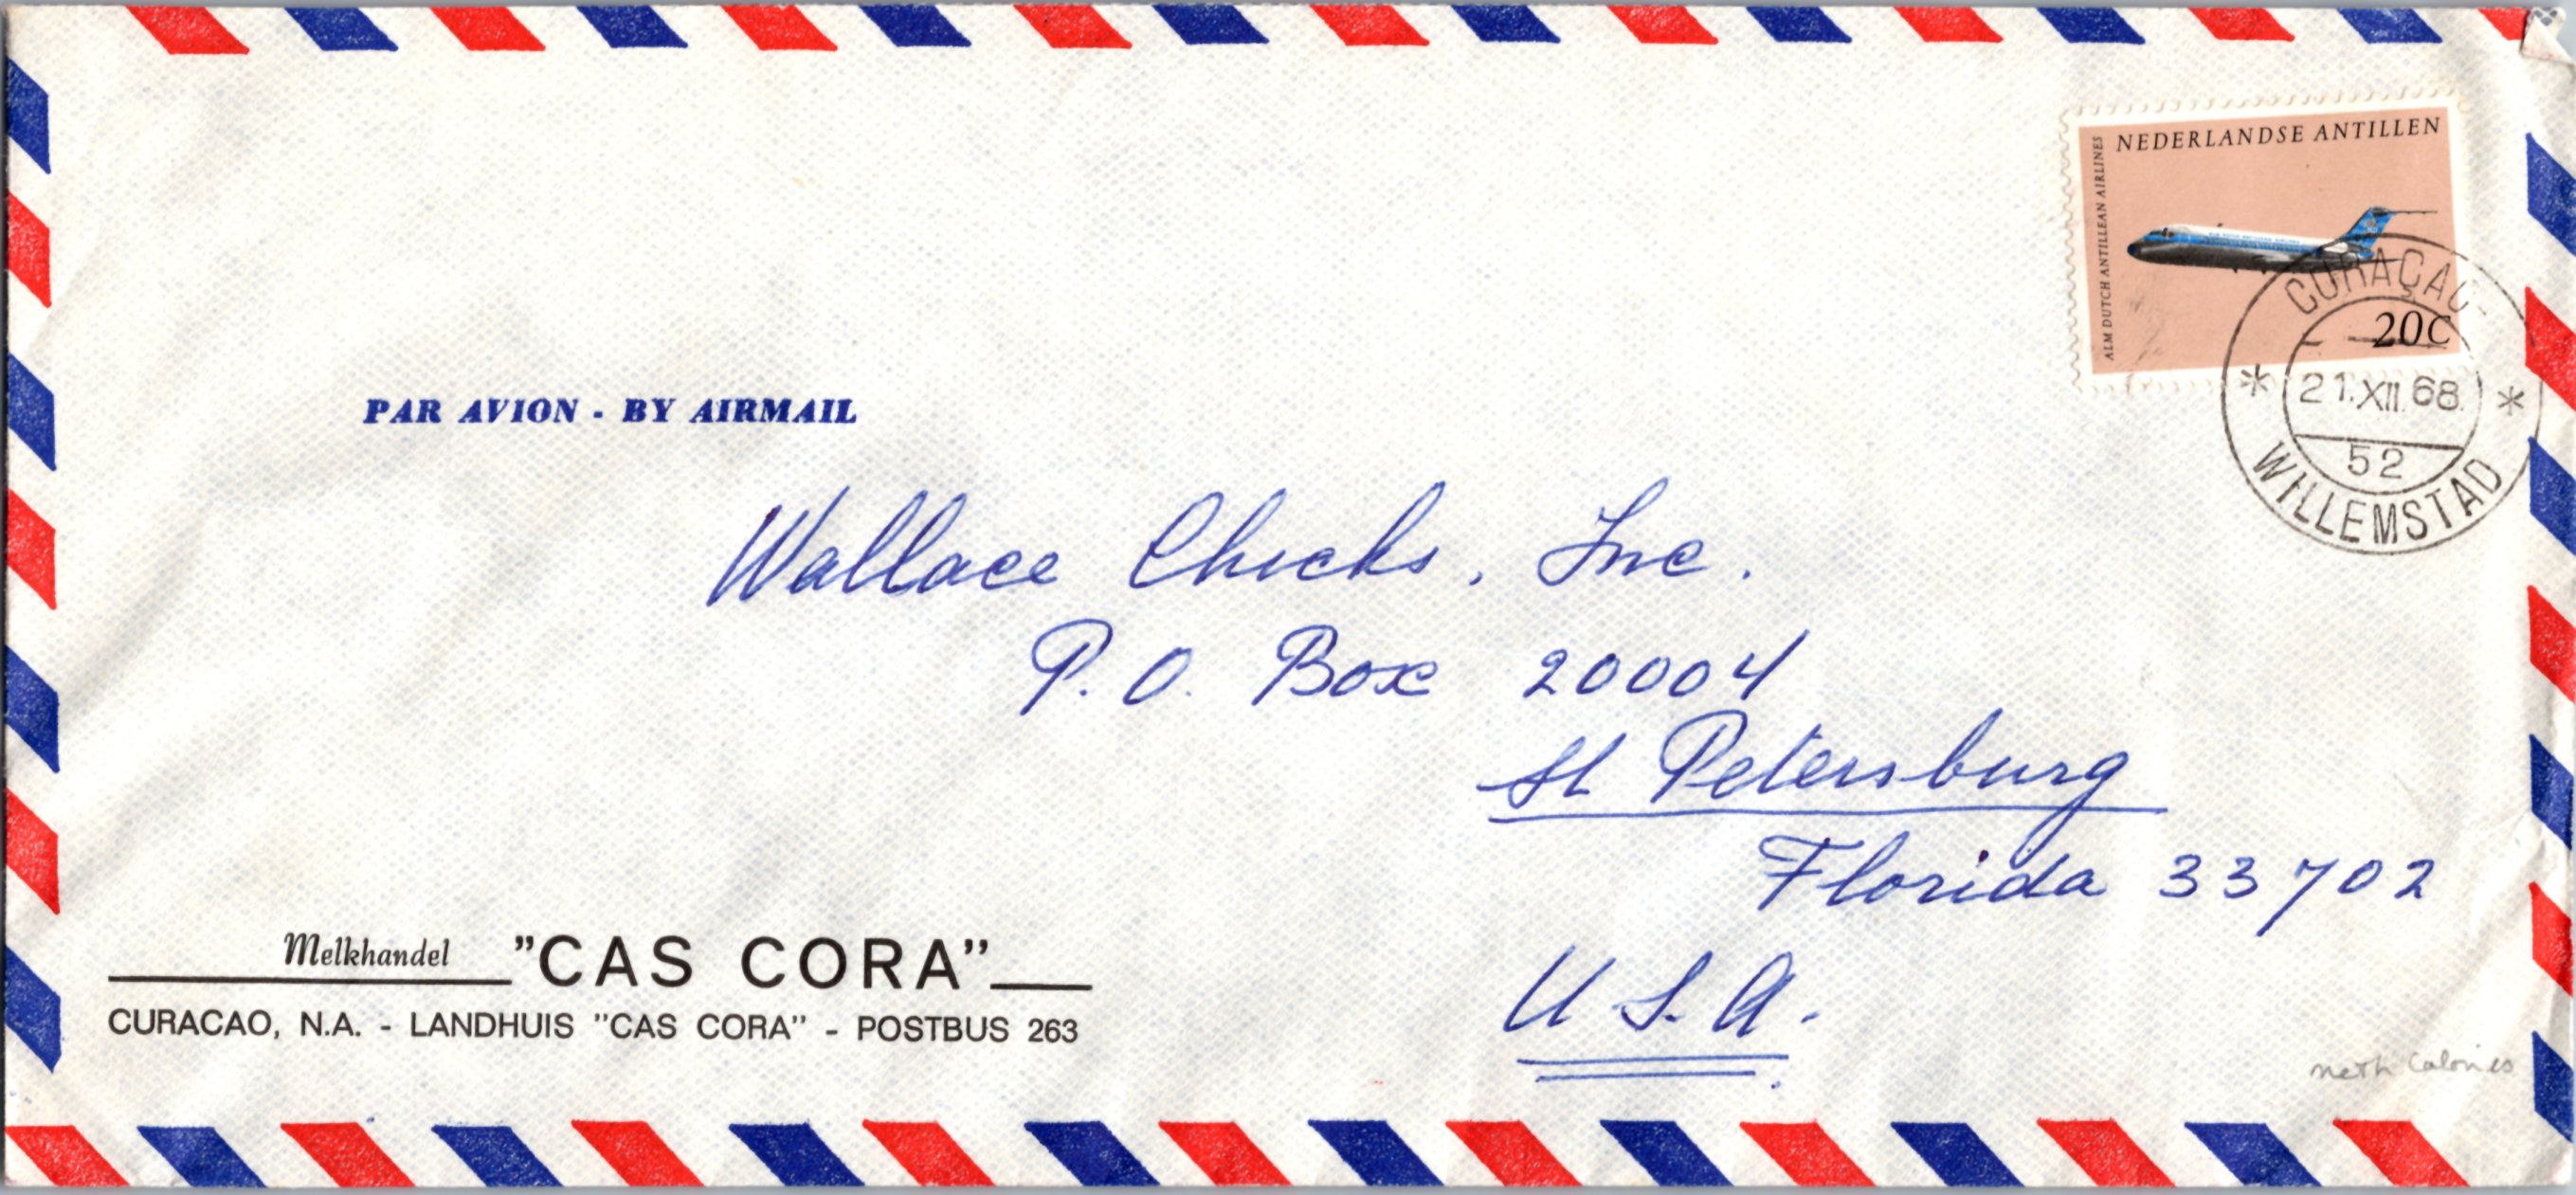 NEDERLANDSE ANTILLEN
ALM DUTCH ANTILLEAN AIRLINES
20C
CURAÇAO
* 21.XII.68. *
52
WILLEMSTAD
PAR AVION - BY AIRMAIL
Wallace Chicks, Inc.
P.O. Box 20004
St Petersburg
Florida 33702
U.S.A.
Melkhandel "CAS CORA"
CURACAO, N.A. - LANDHUIS "CAS CORA" - POSTBUS 263
Neth Colonies